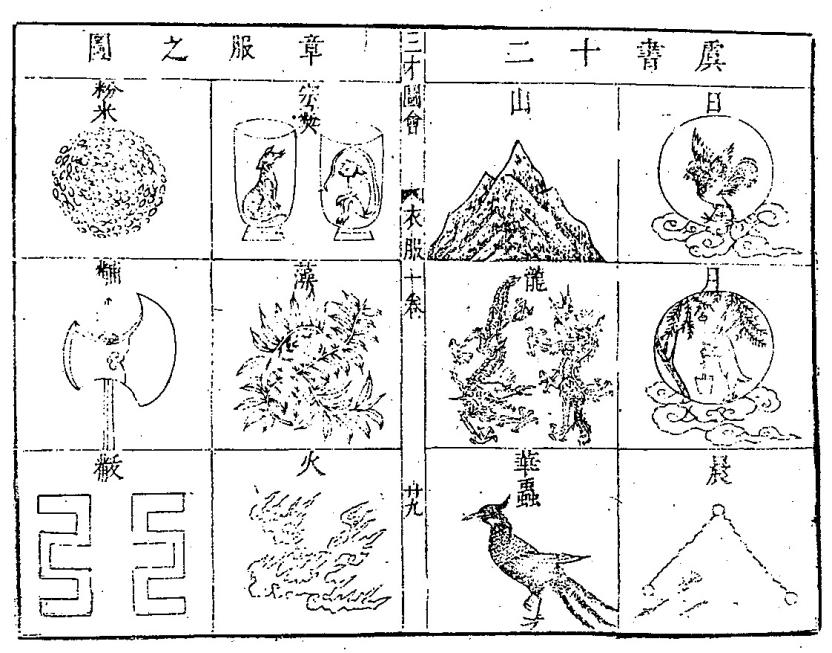 虞書十二
日
月
辰
山
龍
華蟲
三才圖會
衣服十卷
廿九
章服之圖
宗彝
藻
火
粉米
黼
黻